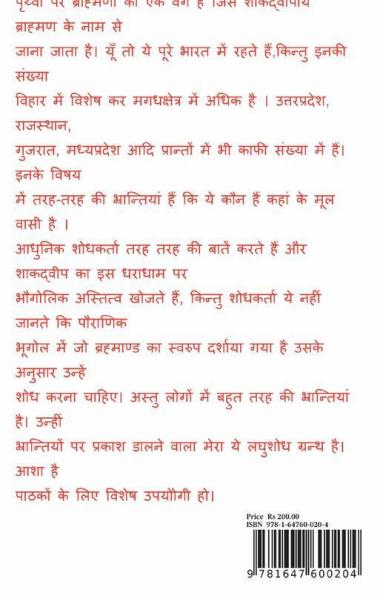 पृथ्वी पर ब्राह्मणों का एक वर्ग है जिसे शाकद्वीपीय
ब्राह्मण के नाम से
जाना जाता है। यूँ तो ये पूरे भारत में रहते हैं,किन्तु इनकी
संख्या
विहार में विशेष कर मगधक्षेत्र में अधिक है । उत्तरप्रदेश,
राजस्थान,
गुजरात, मध्यप्रदेश आदि प्रान्तों में भी काफी संख्या में हैं।
इनके विषय
में तरह-तरह की भ्रान्तियां हैं कि ये कौन हैं कहां के मूल
वासी है ।
आधुनिक शोधकर्ता तरह तरह की बातें करते हैं और
शाकद्वीप का इस धराधाम पर
भौगोलिक अस्तित्व खोजते हैं, किन्तु शोधकर्ता ये नहीं
जानते कि पौराणिक
भूगोल में जो ब्रह्माण्ड का स्वरुप दर्शाया गया है उसके
अनुसार उन्हें
शोध करना चाहिए। अस्तु लोगों में बहुत तरह की भ्रान्तियां
है। उन्हीं
भ्रान्तियों पर प्रकाश डालने वाला मेरा ये लघुशोध ग्रन्थ है।
आशा है
पाठकों के लिए विशेष उपयोीगी हो।
Price Rs 200.00
ISBN 978-1-64760-020-4
9 781647 600204